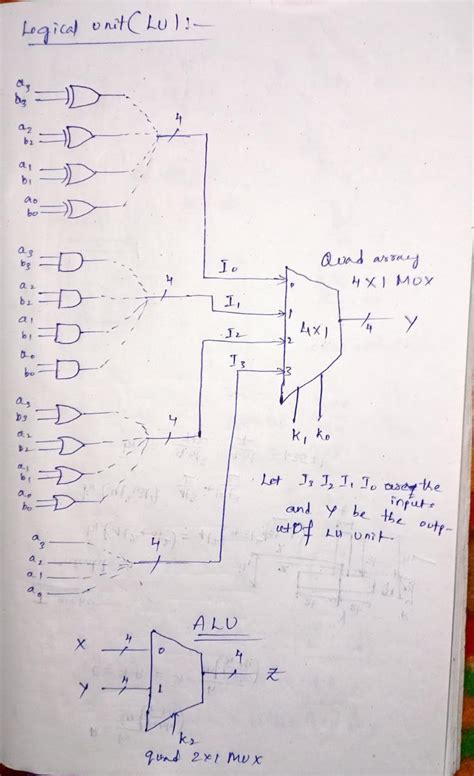 Logical unit (LU) :-
a3
b3
a2
b2
a1
b1
a0
b0
4
a3
b3
a2
b2
a1
b1
a0
b0
4
a3
b3
a2
b2
a1
b1
a0
b0
4
a3
a2
a1
a0
4
I0
I1
I2
I3
0
1
2
3
4x1
K1 K0
Quad array
4x1 MUX
4 Y
Let I3 I2 I1 I0 are the
inputs
and Y be the outp-
ut of LU unit.
ALU
X 4 0
Y 4 1
4 Z
K2
quad 2x1 MUX